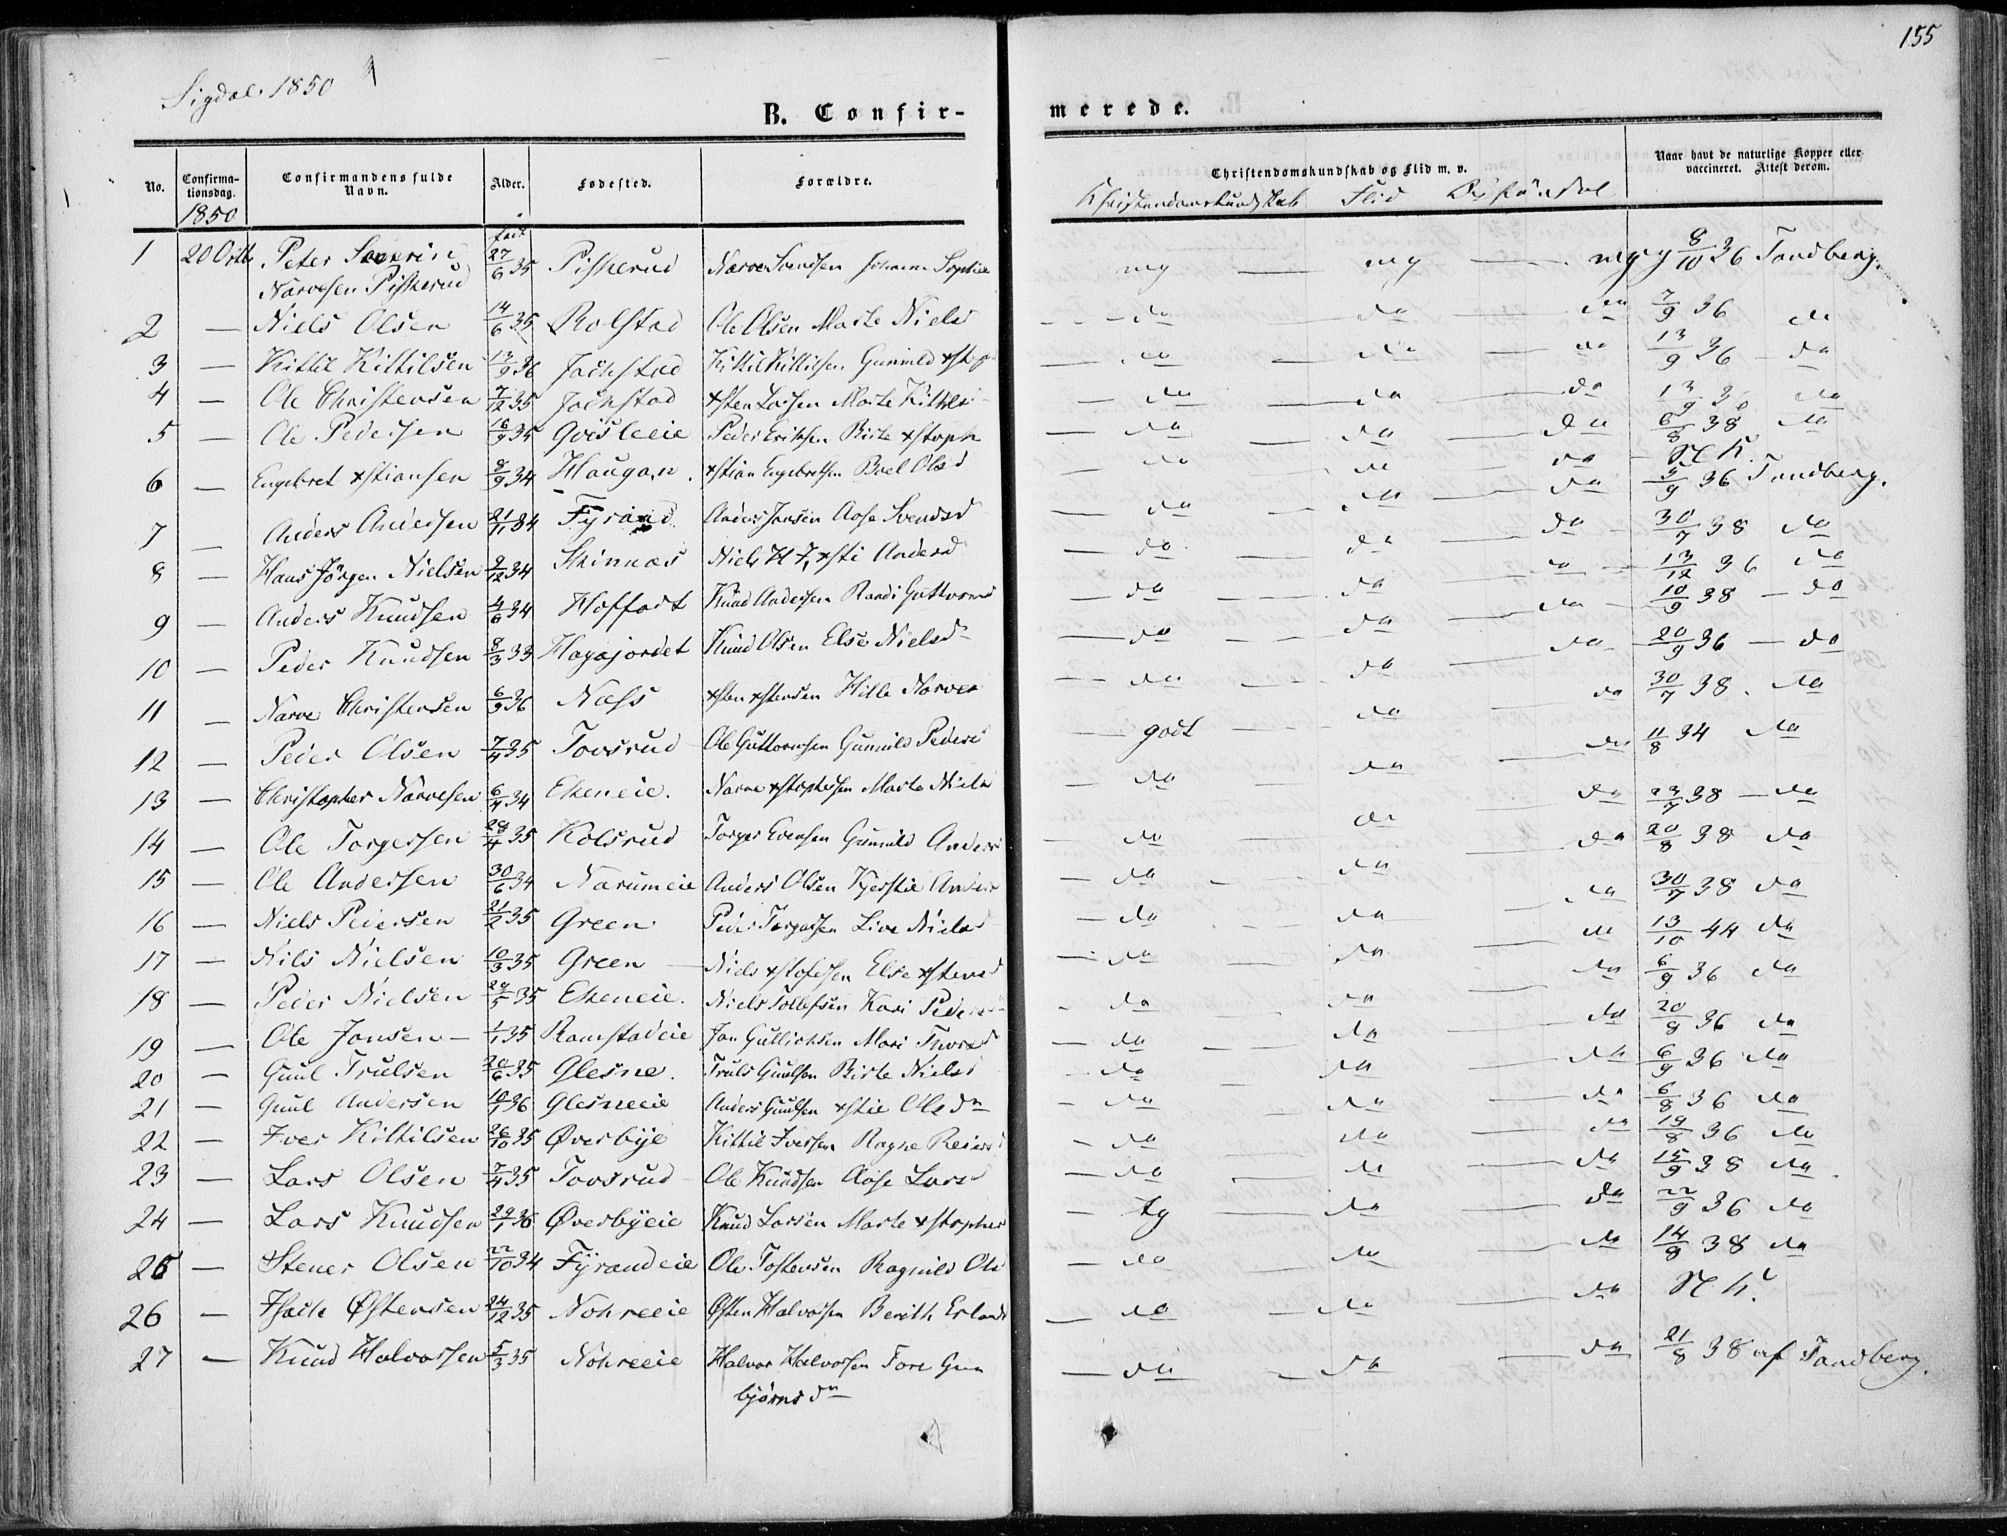 155
Sigdal 1850
B. Confir-
merede.
No.
Confirma-
tionsdag.
Confirmandens fulde
Navn.
Alder.
Fødested.
Forældre.
Christendomskundskab og Flid m. v.
Naar havt de naturlige Kopper eller
vaccineret. Attest derom.
1850
født
Khristendomskundskab Flid
1 20 Octb Peter Severin 27/6 35 Pisherud Narve Svendsen Johanne Sophie mg — mg — mgg 8/10 36 Tandberg.
Narvesen Pisherud
2 — Niels Olsen 14/6 35 Rolstad Ole Olsen Marte Nielsd — da da da 7/9 36 da
3 — Kittil Kittilsen 13/9 36 Jochstad Kittil Kittilsen Gunnild — da — da — da 13/9 36 — da
4 — Ole Christensen 7/12 35 Jochstad xsten Larsen Marte Kittils — da — da — da 13/9 36 da
5 — Ole Pedersen 16/9 35 Gvisleeie Peder Eriksen Birte xstoph — da — da — da 6/8 38 da
6 — Engebret xstiansen 8/9 34 Haugan xstian Engebretsen Boel Olsd — da da — da — N. K.
7 — Anders Andersen 21/11 34 Fyrand Anders Jensen Aase Svendsd — da — da — da 5/9 36 Tandberg.
8 — Hans Jørgen Nielsen 2/12 34 Skinnæs Niels H J, xsti Andersd — da — da — da — 30/7 38 da
9 — Anders Knudsen 4/6 34 Hoffart Knud Andersen Randi Guttorms — da — da — da — 13/12 36 da
10 — Peder Knudsen 8/3 33 Hagajordet Knud Olsen Else Nielsd — da — da — da — 10/9 38 — da
11 — Narve Christensen 6/9 36 Næss xsten xstensen Hille Narves — da — da — da 20/9 36 — da
12 — Peder Olsen 7/4 35 Tovsrud Ole Guttormsen Gunnild Peders — godt — da — da 30/7 38. da
13 — Christopher Narvesen 6/4 34 Ekeneie. Narve xstophersen Marte Niels — da — da — da 11/8 34 da
14 — Ole Torgersen 28/4 35 Kolsrud Torger Evensen Gunnild Anders — da da — da 23/7 38 — da
15 — Ole Andersen 30/6 34 Narumeie Anders Olsen Kjerstie Anders — da — da — da 20/8 38 da
16 — Niels Pedersen 21/2 35 Green Peder Torgersen Live Nielsd — da — da — da 30/7 38 da
17 — Nils Nielsen 10/3 35 Green — Niels xstofersen Else xstensd — da — da — da 13/10 44 da
18 — Peder Nielsen 24/5 35 Ekeneie. Niels Tollefsen Kari Peders — da da — da 6/9 36 da
19 — Ole Jansen — 1/1 35 Ramstadeie Jan Gulliksen Mari Thorsd — da — da — da 20/8 36 da
20 — Guul Trulsen 20/6 35 Glesne. Truls Guulsen Birte Nielsd — da da — da 6/9 36 da
21 — Guul Andersen 10/1 36 Glesneeie Anders Guulsen xstie Olsdr — da — da — da 6/8 36 da
22 — Iver Kittilsen 26/10 35 Øverbye Kittil Iversen Ragne Reiersd — da da — da 19/8 36 da
23 — Lars Olsen 7/4 35 Tovsrud Ole Knudsen Aase Larsd — da — da — da 15/9 38 da
24 — Lars Knudsen 29/1 36 Øverbyeie Knud Larsen Marte xstophers — tg — da — da 22/9 36 da
25 — Stener Olsen 22/10 34 Fyrandeie Ole Tostensen Ragnild Ols — da — da — da 14/9 38 da
26 — Østensen 24/12 35 Nohreeie Østen Halvorsen Berith Erlands — da — da — da N. K.
27 — Knud Halvorsen 5/3 35 Nohreeie Halvor Halvorsen Tore Gun — da — da — da 21/8 38 af Tandberg.
bjørnsdr